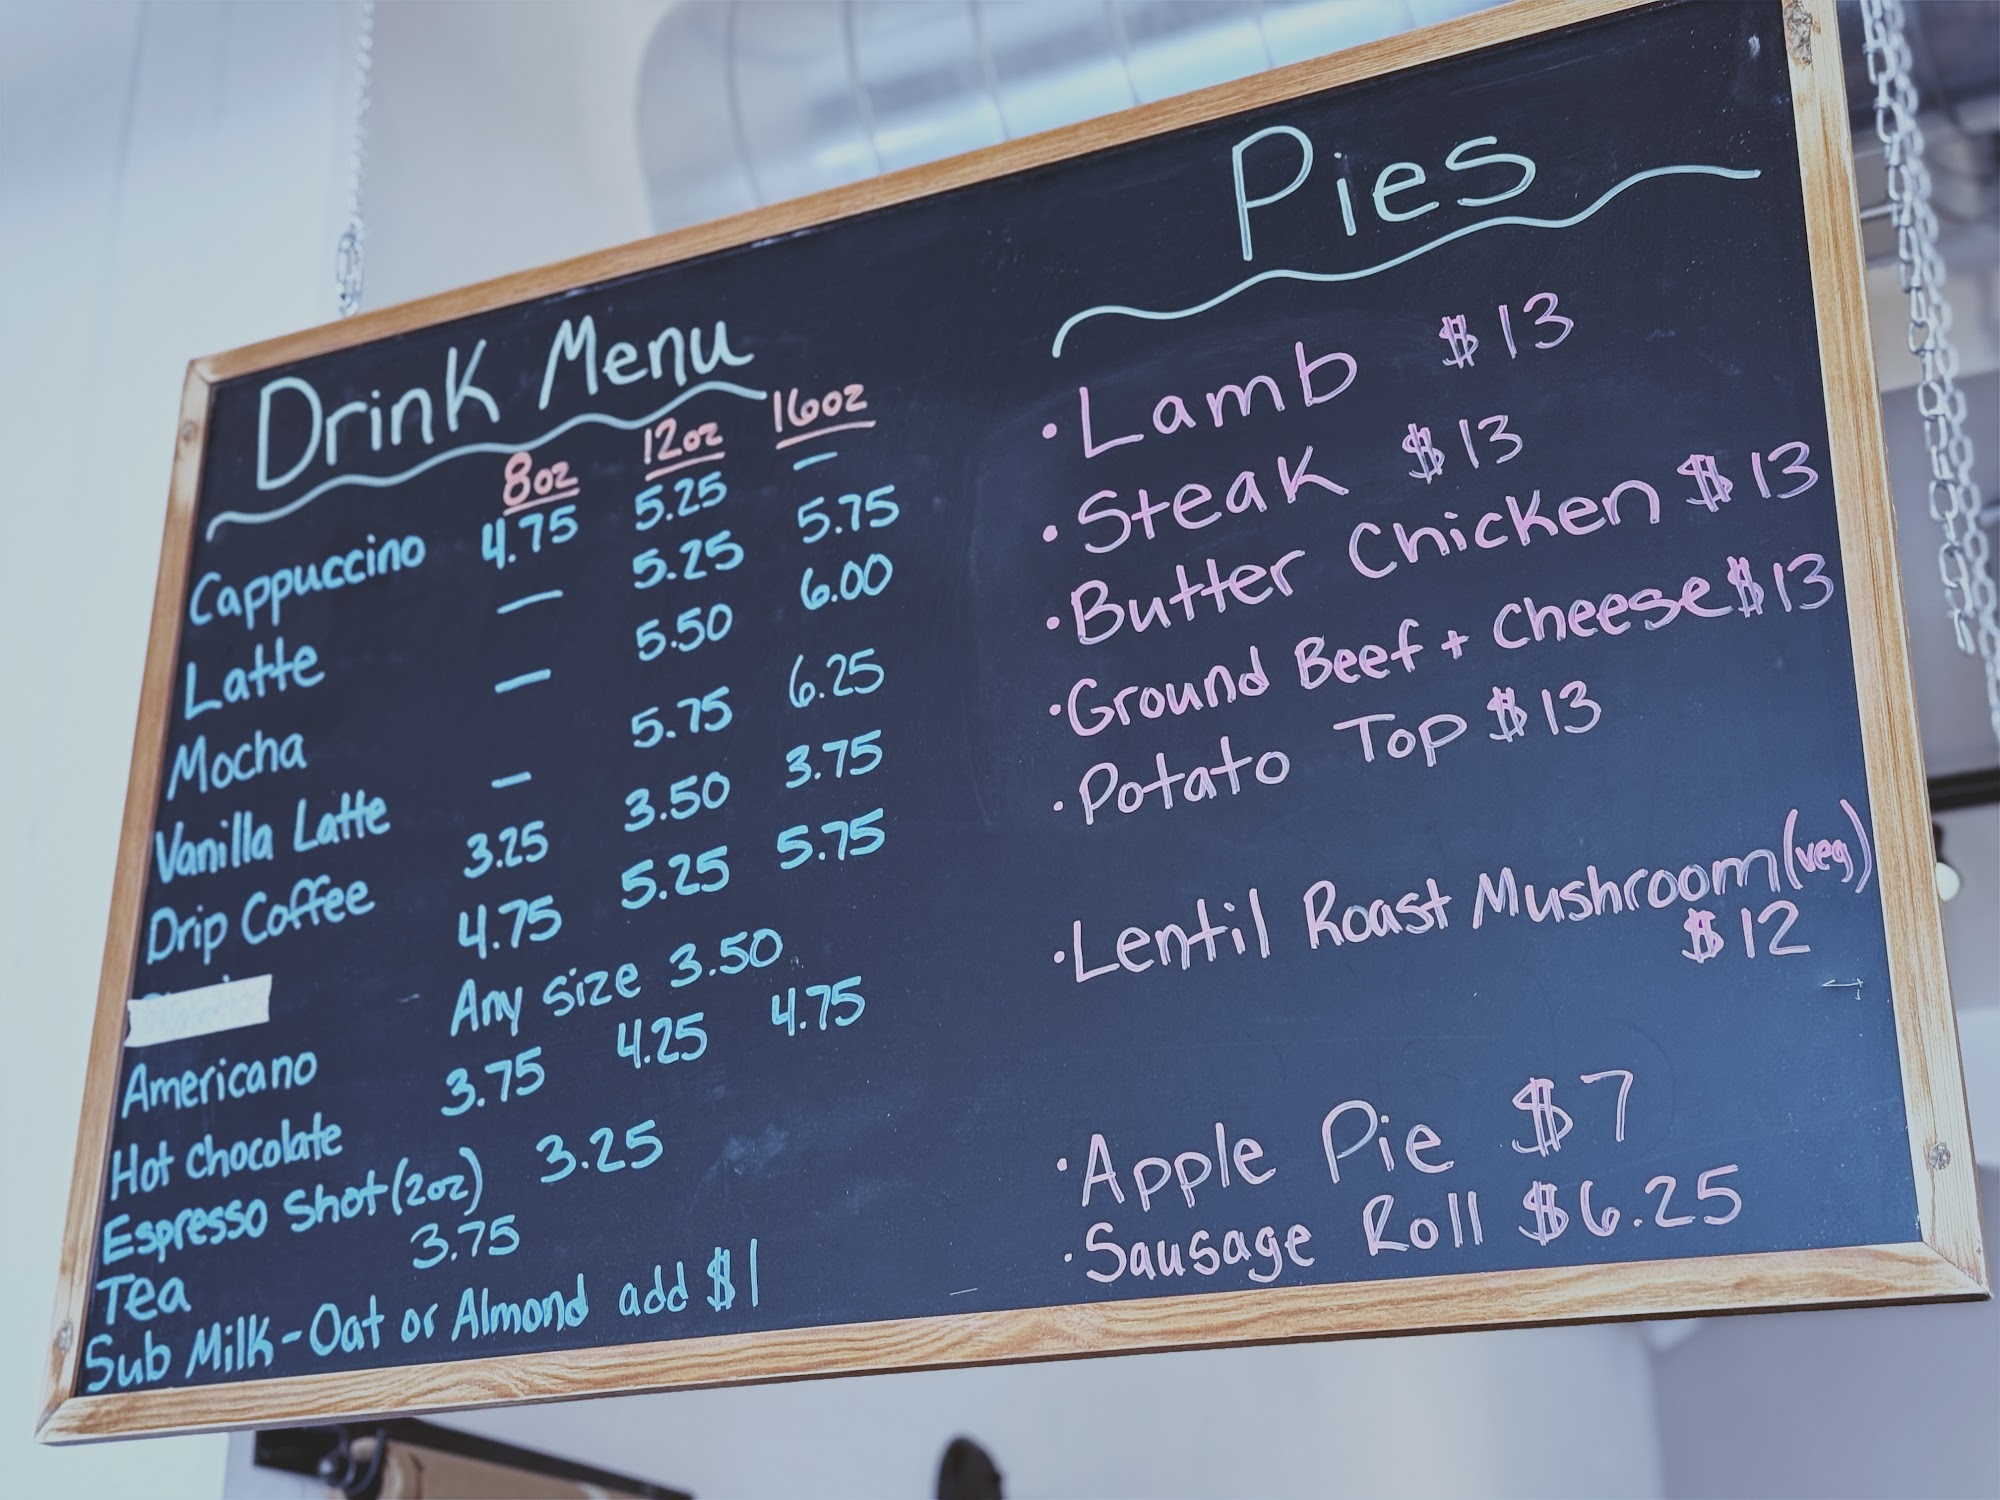 Drink Menu
8oz 12oz 16oz
Cappuccino 4.75 5.25 —
Latte — 5.25 5.75
Mocha — 5.50 6.00
Vanilla Latte — 5.75 6.25
Drip Coffee 3.25 3.50 3.75
4.75 5.25 5.75
Americano Any size 3.50
Hot Chocolate 3.75 4.25 4.75
Espresso Shot (2oz) 3.25
Tea 3.75
Sub Milk - Oat or Almond add $1
Pies
• Lamb $13
• Steak $13
• Butter Chicken $13
• Ground Beef + Cheese $13
• Potato Top $13
• Lentil Roast Mushroom (veg)
$12
• Apple Pie $7
• Sausage Roll $6.25